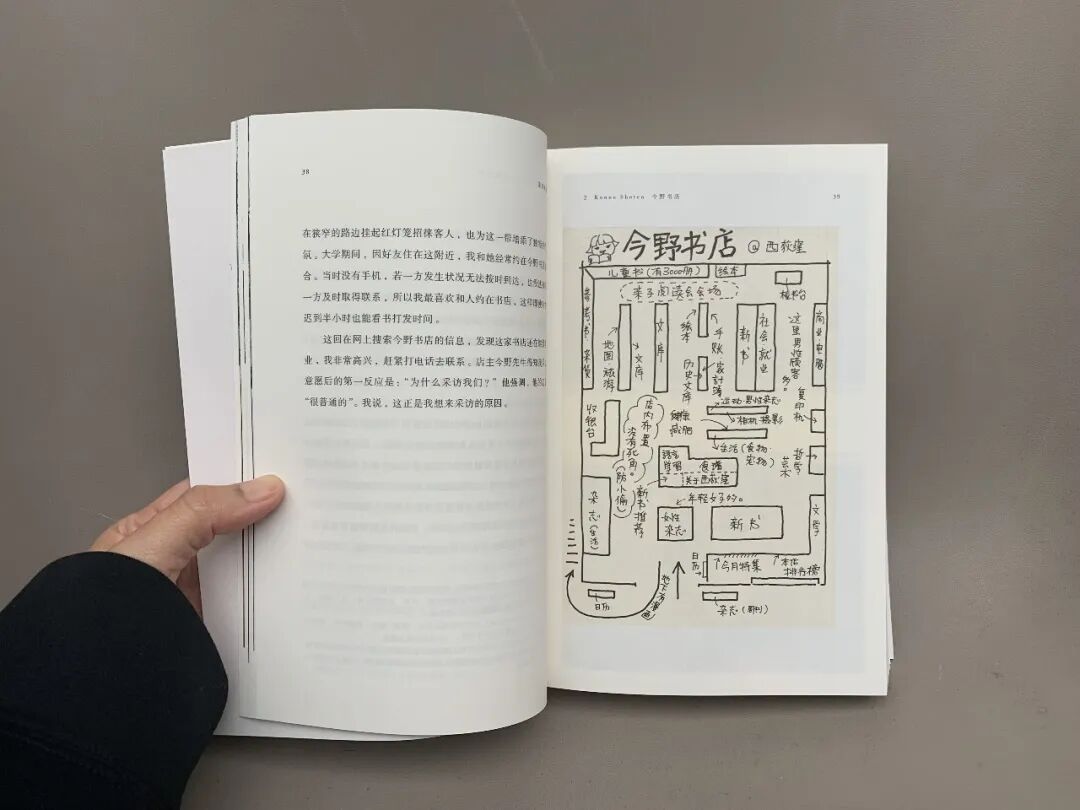 38
在狭窄的路边挂起红灯笼招徕客人，也为这一带增添了
氛。大学期间，因好友住在这附近，我和她经常约在今野书店
合。当时没有手机，若一方发生状况无法按时到达，也
一方及时取得联系，所以我最喜欢和人约在书店。这样即使
迟到半小时也能看书打发时间。
这回在网上搜索今野书店的信息，发现这家书店还在
业，我非常高兴，赶紧打电话去联系。店主今野先生得知
意愿后的第一反应是：“为什么采访我们？”他强调，
“很普通的”。我说，这正是我想来采访的原因。
2 Konno Shoten 今野书店
39
今野书店 @西荻窪
儿童书（有3000册）
绘本
亲子阅读会会场
参考书·杂货
地图·旅游
文库
文库
绘本
手账·家计簿
历史文库
新书
社会·就业
这里男性顾客多。
商业·电脑
复印机
收银台
店内布置没有死角。（防小偷）
减肥
运动·男性杂志
相机·摄影
生活（食物·宠物）
艺术
哲学
语言学习
食谱
关于西荻窪
新书推荐
杂志（生活）
年轻女子的。
女性杂志
新书
文学
日历
今月特集
本店排行榜
日历
杂志（周刊）